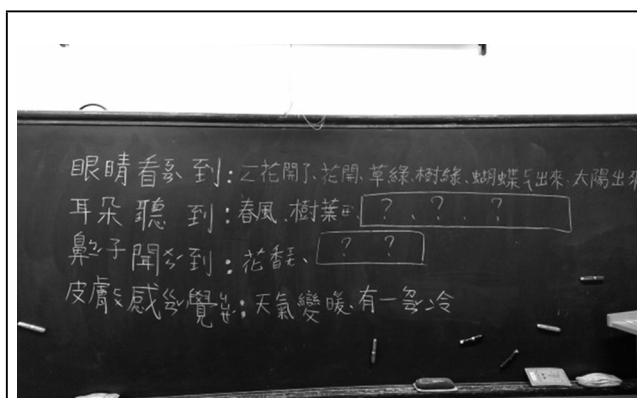 眼睛看到：花開了、花開、草綠、樹綠、蝴蝶出來、太陽出
耳朵聽到：春風、樹葉、？、？、？
鼻子聞到：花香、？ ？
皮膚感覺：天氣變暖、有一冷